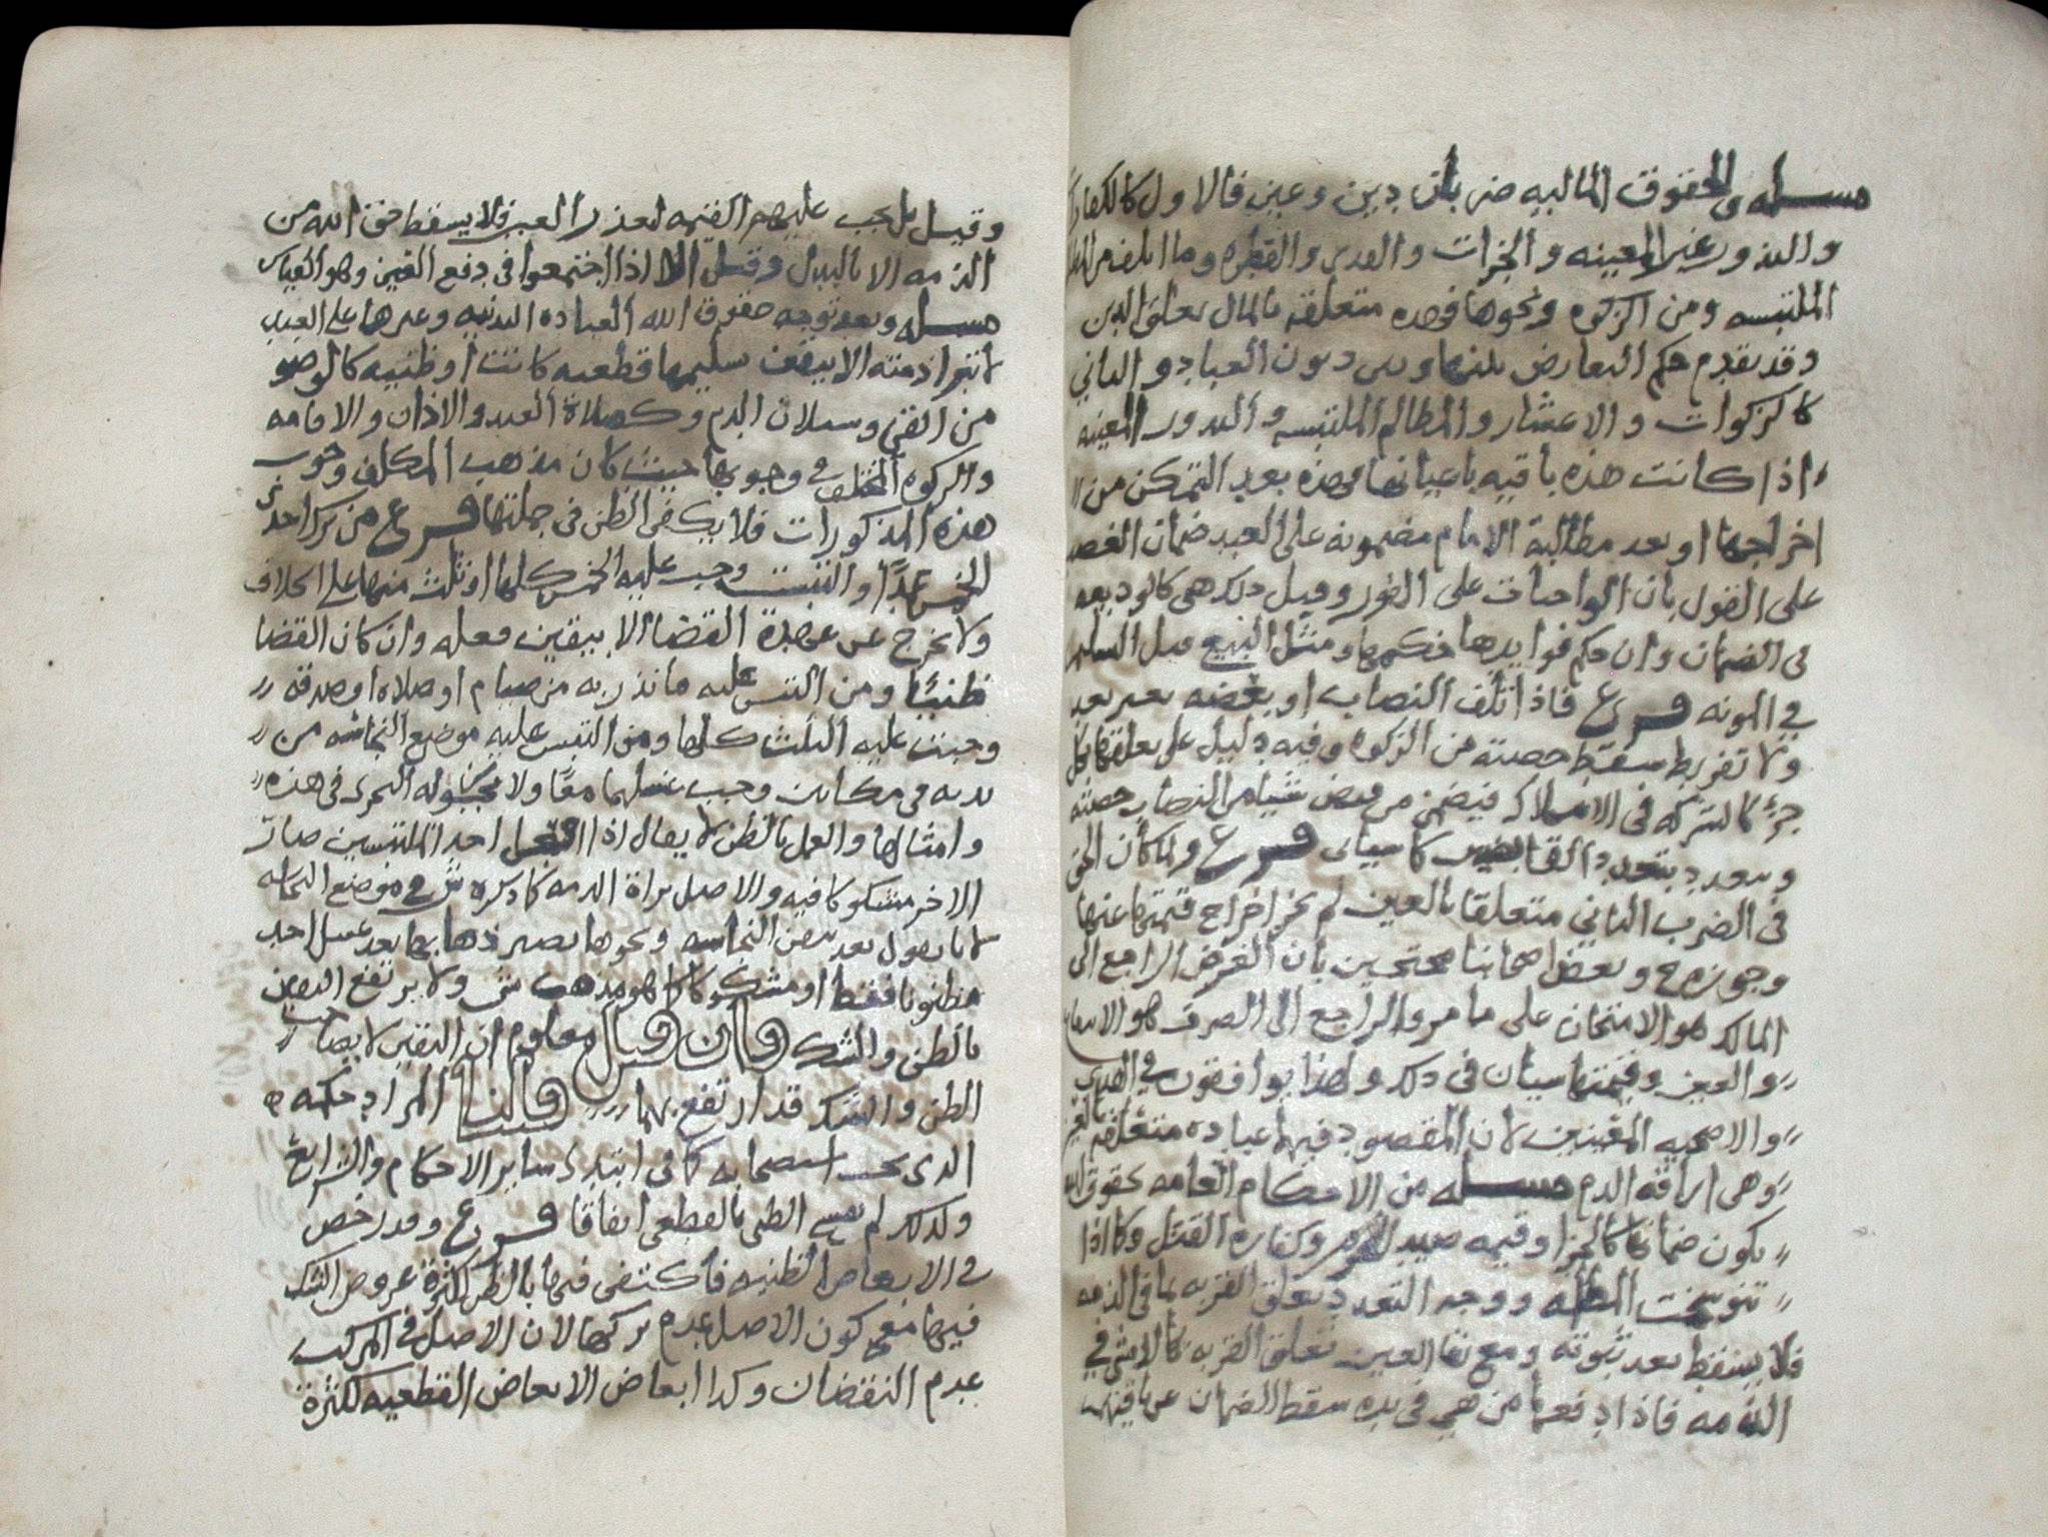 مسله والحقوق الماليه ضربان دين وعين فالاول كالكفارات
والنذور غير المعينه والجزات والفديه والفطره وما اتلف من المظالم
الملتبسه ومن الزكوه ونحوها فهذه متعلقه بالمال تعلق الدين
وقد تقدم حكم التعارض بينها وبين ديون العباد والثاني
كالزكوات والاعشار والمظالم الملتبسه والنذور المعينه
اذا كانت هذه باقيه باعيانها فهذه بعد التمكن من
اخراجها او بعد مطالبة الامام مضمونه على العبد ضمان الغصب
على القول بان الواجبات على الفور وقيل ذلك هي كالوديعه
في الضمان وان حكم فوايدها حكمها ومثل المبيع قبل التسليم
في المونه فرع فاذا تلف النصاب او بعضه بغير تعد
ولا تفريط سقط حصته من الزكوه وفيه دليل على تعلقها بكل
جزء كالشركه في الاملاك فيضمن من قبض شيا من النصاب حصته
وتعدد بتعدد القابضين كما سياتي فرع ولما كان الحق
في الضرب الثاني متعلقا بالعين لم يجز اخراج قيمتها عنها
وجوزه ح وبعض اصحابنا محتجين بان الغرض الراجع الى
المالك هو الامتحان على ما مر والراجع الى المصرف هو الانتفاع
والعين وقيمتها سيان في ذلك ولهذا يوافقون في الهدي
والاضحيه المعينين لان المقصود فيهما عباده متعلقه بالعين
وهي اراقة الدم مسله من الاحكام العامه حقوق الله
يكون ضمانها كالجزا وقيمه صيد الحرم وكفاره القتل وكما اذا
تنوسخت المظلمه ووجه التعدد تعلق القربه بما في الذمه
فلا يسقط بعد ثبوته ومع بقا العين تعلق القربه كالامثى في
الذمه فاذا دفعها من هي في يده سقط الضمان عن باقيهم
وقيل بل يجب عليهم القيمه لتعذر العين فلا يسقط حق الله من
الذمه الا بالبدل وقيل الا اذا اجتمعوا في دفع العين وهو القياس
مسله وبعد توجه حقوق الله العباده البدنيه وغيرها على العبد
لا تبرا ذمته الا بيقين تسليمها قطعيه كانت او ظنيه كالوضو
من القي وسيلان الدم وكصلاة العيد والاذان والاقامه
والزكوه المختلف في وجوبها حيث كان مذهب المكلف وجوب
هذه المذكورات فلا يكفي الظن في جملتها فرع من ترك احدى
الخمس عمدا او التبست وجب عليه الخمس كلها او ثلث منها على الخلاف
ولا يخرج عن عهدة القضا الا بيقين فعله وان كان القضا
ظنيا ومن التبس عليه ما نذر به من صيام او صلاه او صدقه
وجبت عليه الثلث كلها ومن التبس عليه موضع النجاسه من
بدنه في مكانين وجب غسلهما معا ولا يجوز له التحري في هذه
وامثالها والعمل بالظن لا يقال اذا فعل احد الملتبسين صار
الاخر مشكوكا فيه والاصل براة الذمه كما ذكره ش في موضع النجاسه
لانا نقول بعد تيقن النجاسه ونحوها يصير ذهابها بعد غسل احد
مظنونا فقط او مشكوكا كما هو مذهب ش ولا يرتفع اليقين
بالظن والشك فان قيل معلوم ان اليقين لا يصاحب
الظن والشك قد ارتفع بهما قلنا المراد حكمه
الذي يجب استصحابه كما في ابتدا ساير الاحكام والشرايع
ولذلك لم ينسخ الظني بالقطعي اتفاقا فرع وقد رخص
في الابعاض الظنيه فاكتفى فيها بالظن لكثرة عروض الشك
فيها مع كون الاصل عدم تركها لان الاصل في المركب
عدم النقصان وكذا ابعاض الابعاض القطعيه لكثرة